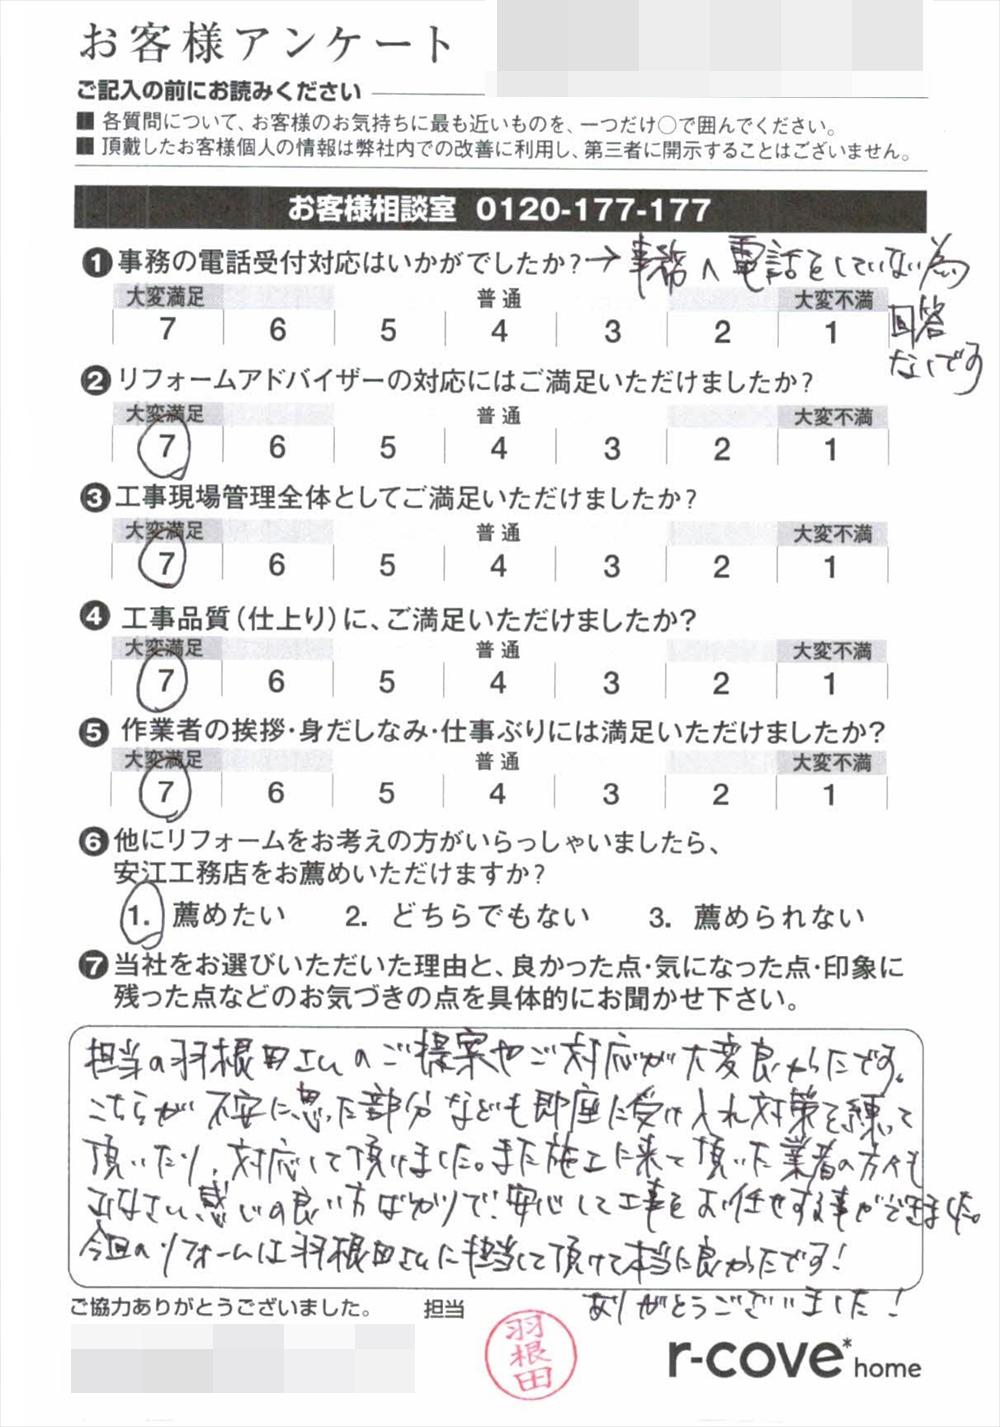 お客様アンケート
ご記入の前にお読みください
■ 各質問について、お客様のお気持ちに最も近いものを、一つだけ○で囲んでください。
■ 頂戴したお客様個人の情報は弊社内での改善に利用し、第三者に開示することはございません。
お客様相談室 0120-177-177
❶ 事務の電話受付対応はいかがでしたか?→事務へ電話をしていない為
回答
ないです
大変満足 普通 大変不満
7 6 5 4 3 2 1
❷ リフォームアドバイザーの対応にはご満足いただけましたか?
大変満足 普通 大変不満
7 6 5 4 3 2 1
❸ 工事現場管理全体としてご満足いただけましたか?
大変満足 普通 大変不満
7 6 5 4 3 2 1
❹ 工事品質(仕上り)に、ご満足いただけましたか?
大変満足 普通 大変不満
7 6 5 4 3 2 1
❺ 作業者の挨拶・身だしなみ・仕事ぶりには満足いただけましたか?
大変満足 普通 大変不満
7 6 5 4 3 2 1
❻ 他にリフォームをお考えの方がいらっしゃいましたら、
安江工務店をお薦めいただけますか?
1. 薦めたい 2. どちらでもない 3. 薦められない
❼ 当社をお選びいただいた理由と、良かった点・気になった点・印象に
残った点などのお気づきの点を具体的にお聞かせ下さい。
担当の羽根田さんのご提案やご対応が大変良かったです。
こちらが不安に思った部分なども即座に受け入れ対策を練って
頂いたり、対応して頂けました。また施工に来て頂いた業者の方々も
みなさん感じの良い方ばかりで、安心して工事をお任せする事ができました。
今回のリフォームは羽根田さんに担当して頂けて本当に良かったです!
ありがとうございました!
ご協力ありがとうございました。 担当
羽根田
r-cove* home